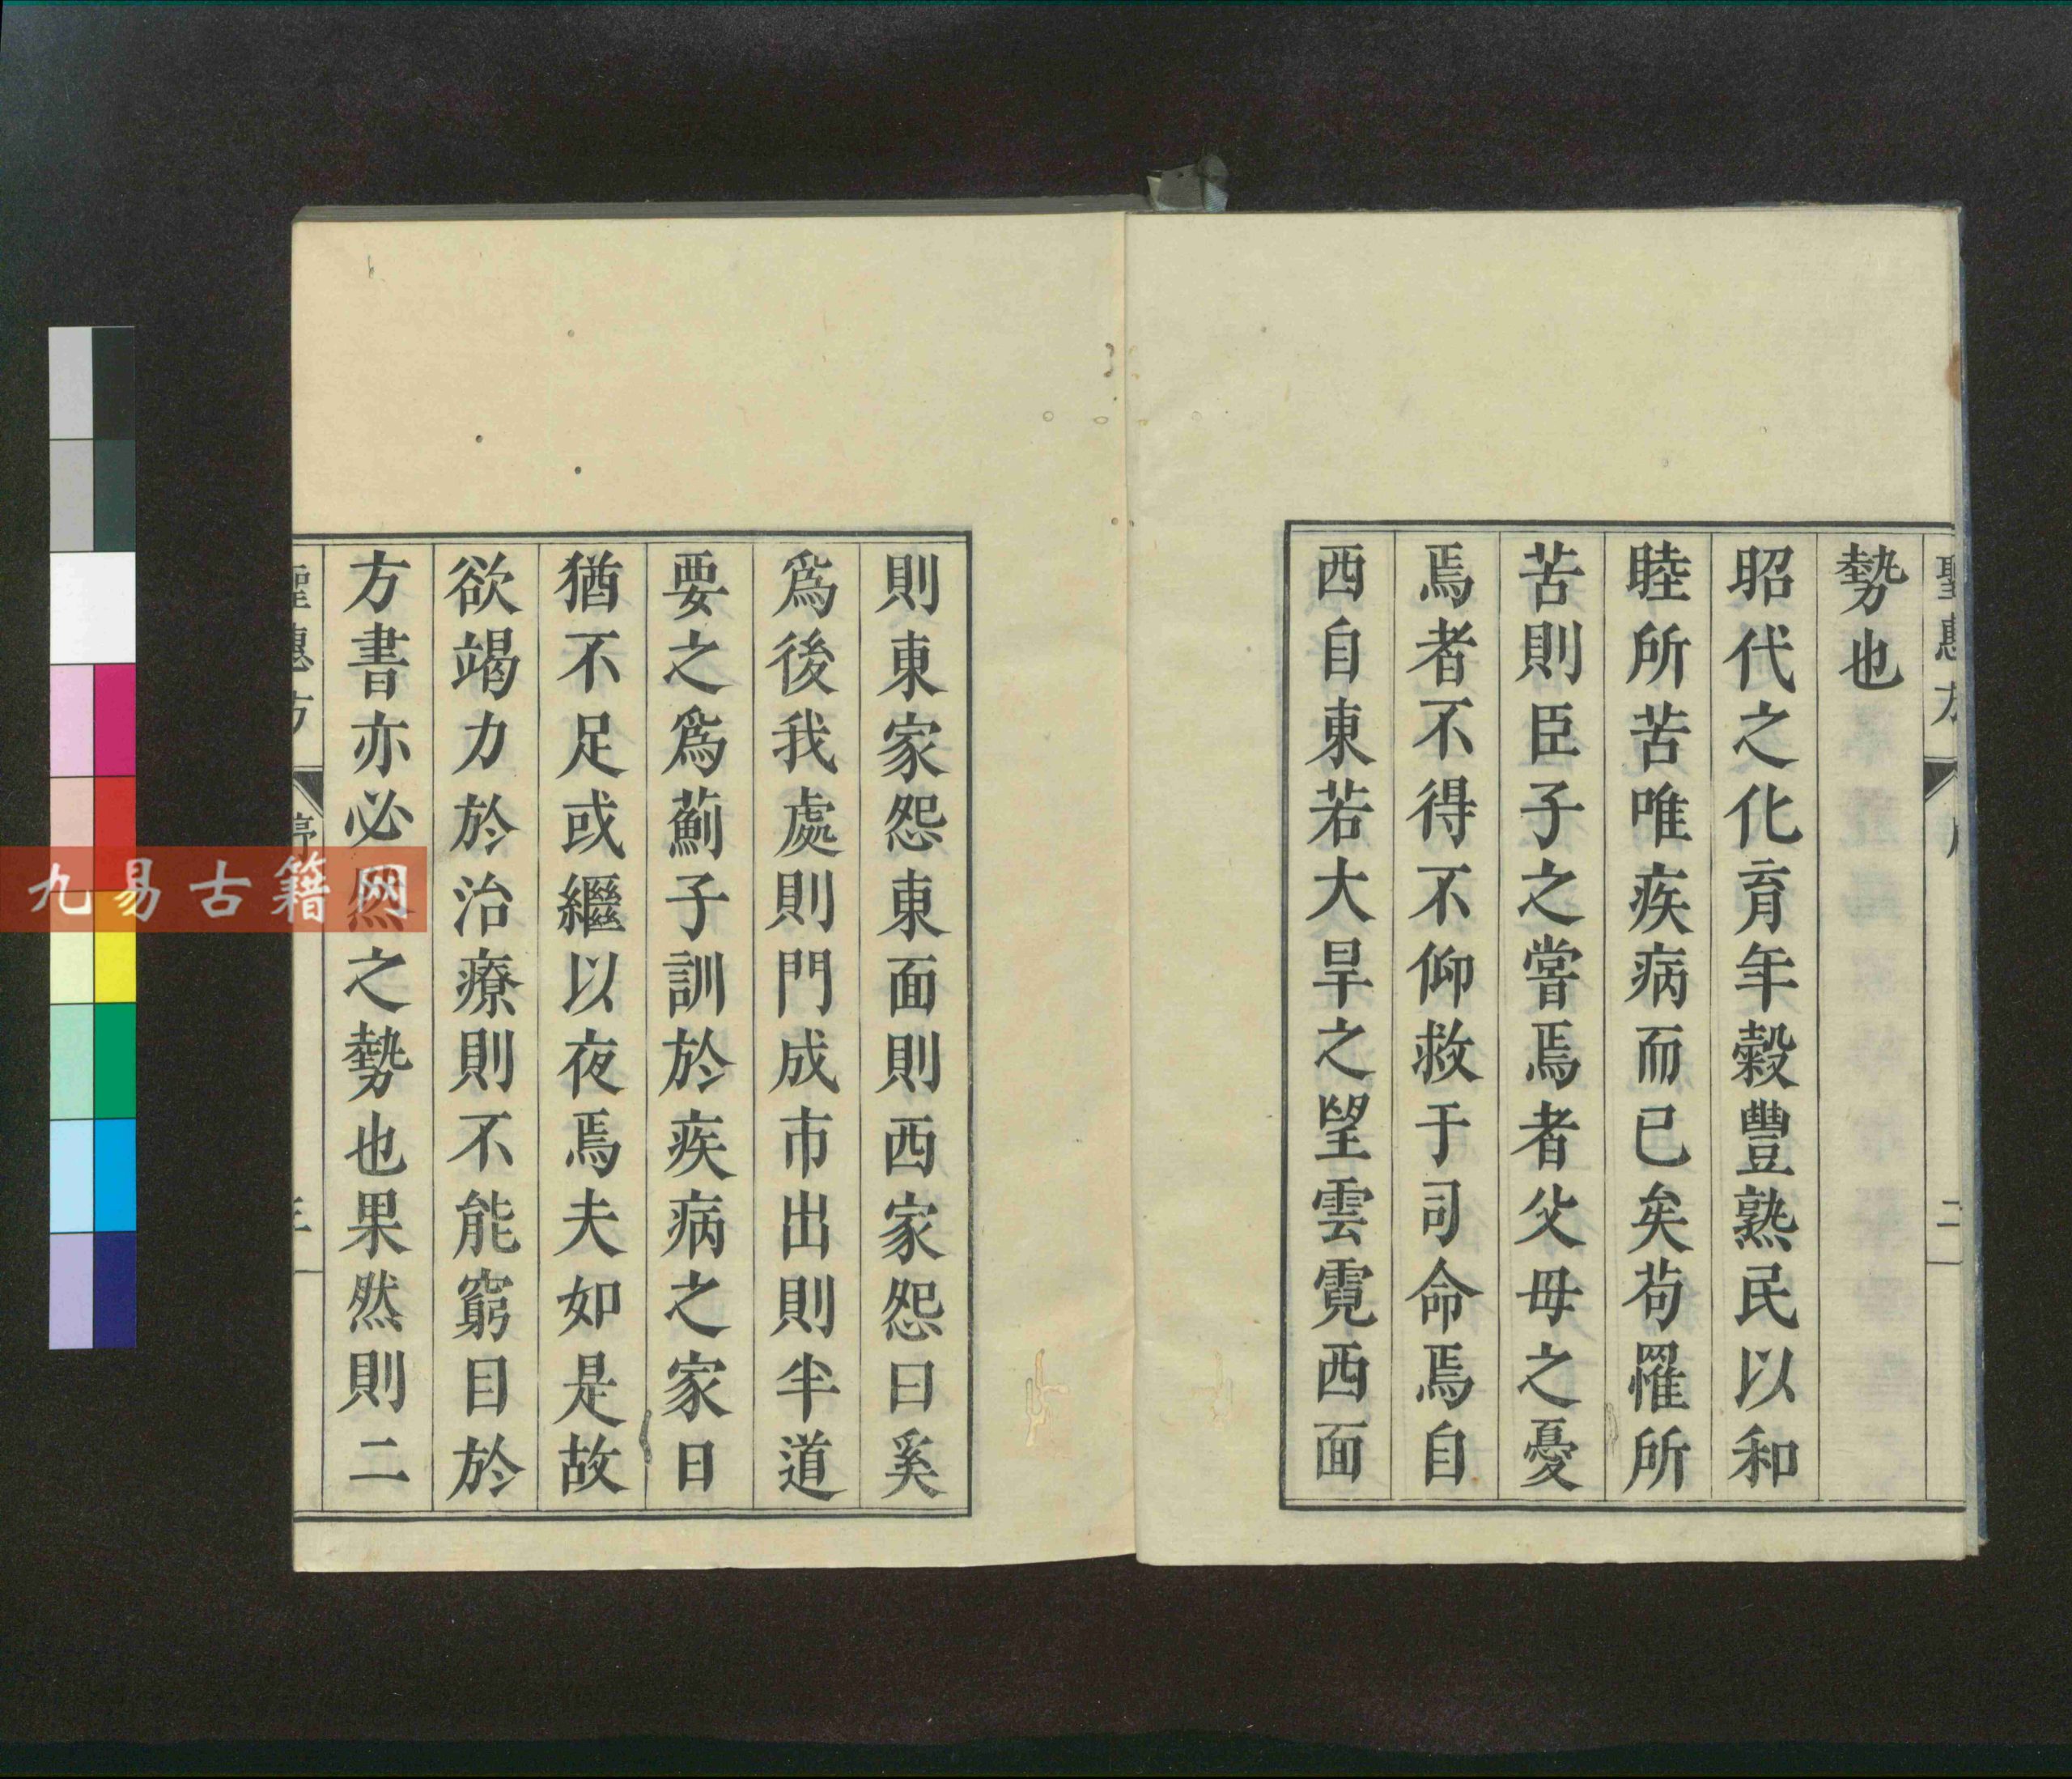 聖惠方
二
勢也
昭代之化育年穀豐熟民以和
睦所苦唯疾病而已矣茍罹所
苦則臣子之嘗焉者父母之憂
焉者不得不仰救于司命焉自
西自東若大旱之望雲霓西面
則東家怨東面則西家怨曰奚
爲後我處則門成市出則半道
要之爲薊子訓於疾病之家日
猶不足或繼以夜焉夫如是故
欲竭力於治療則不能窮目於
方書亦必然之勢也果然則二
聖惠方
序
三
九易古籍网